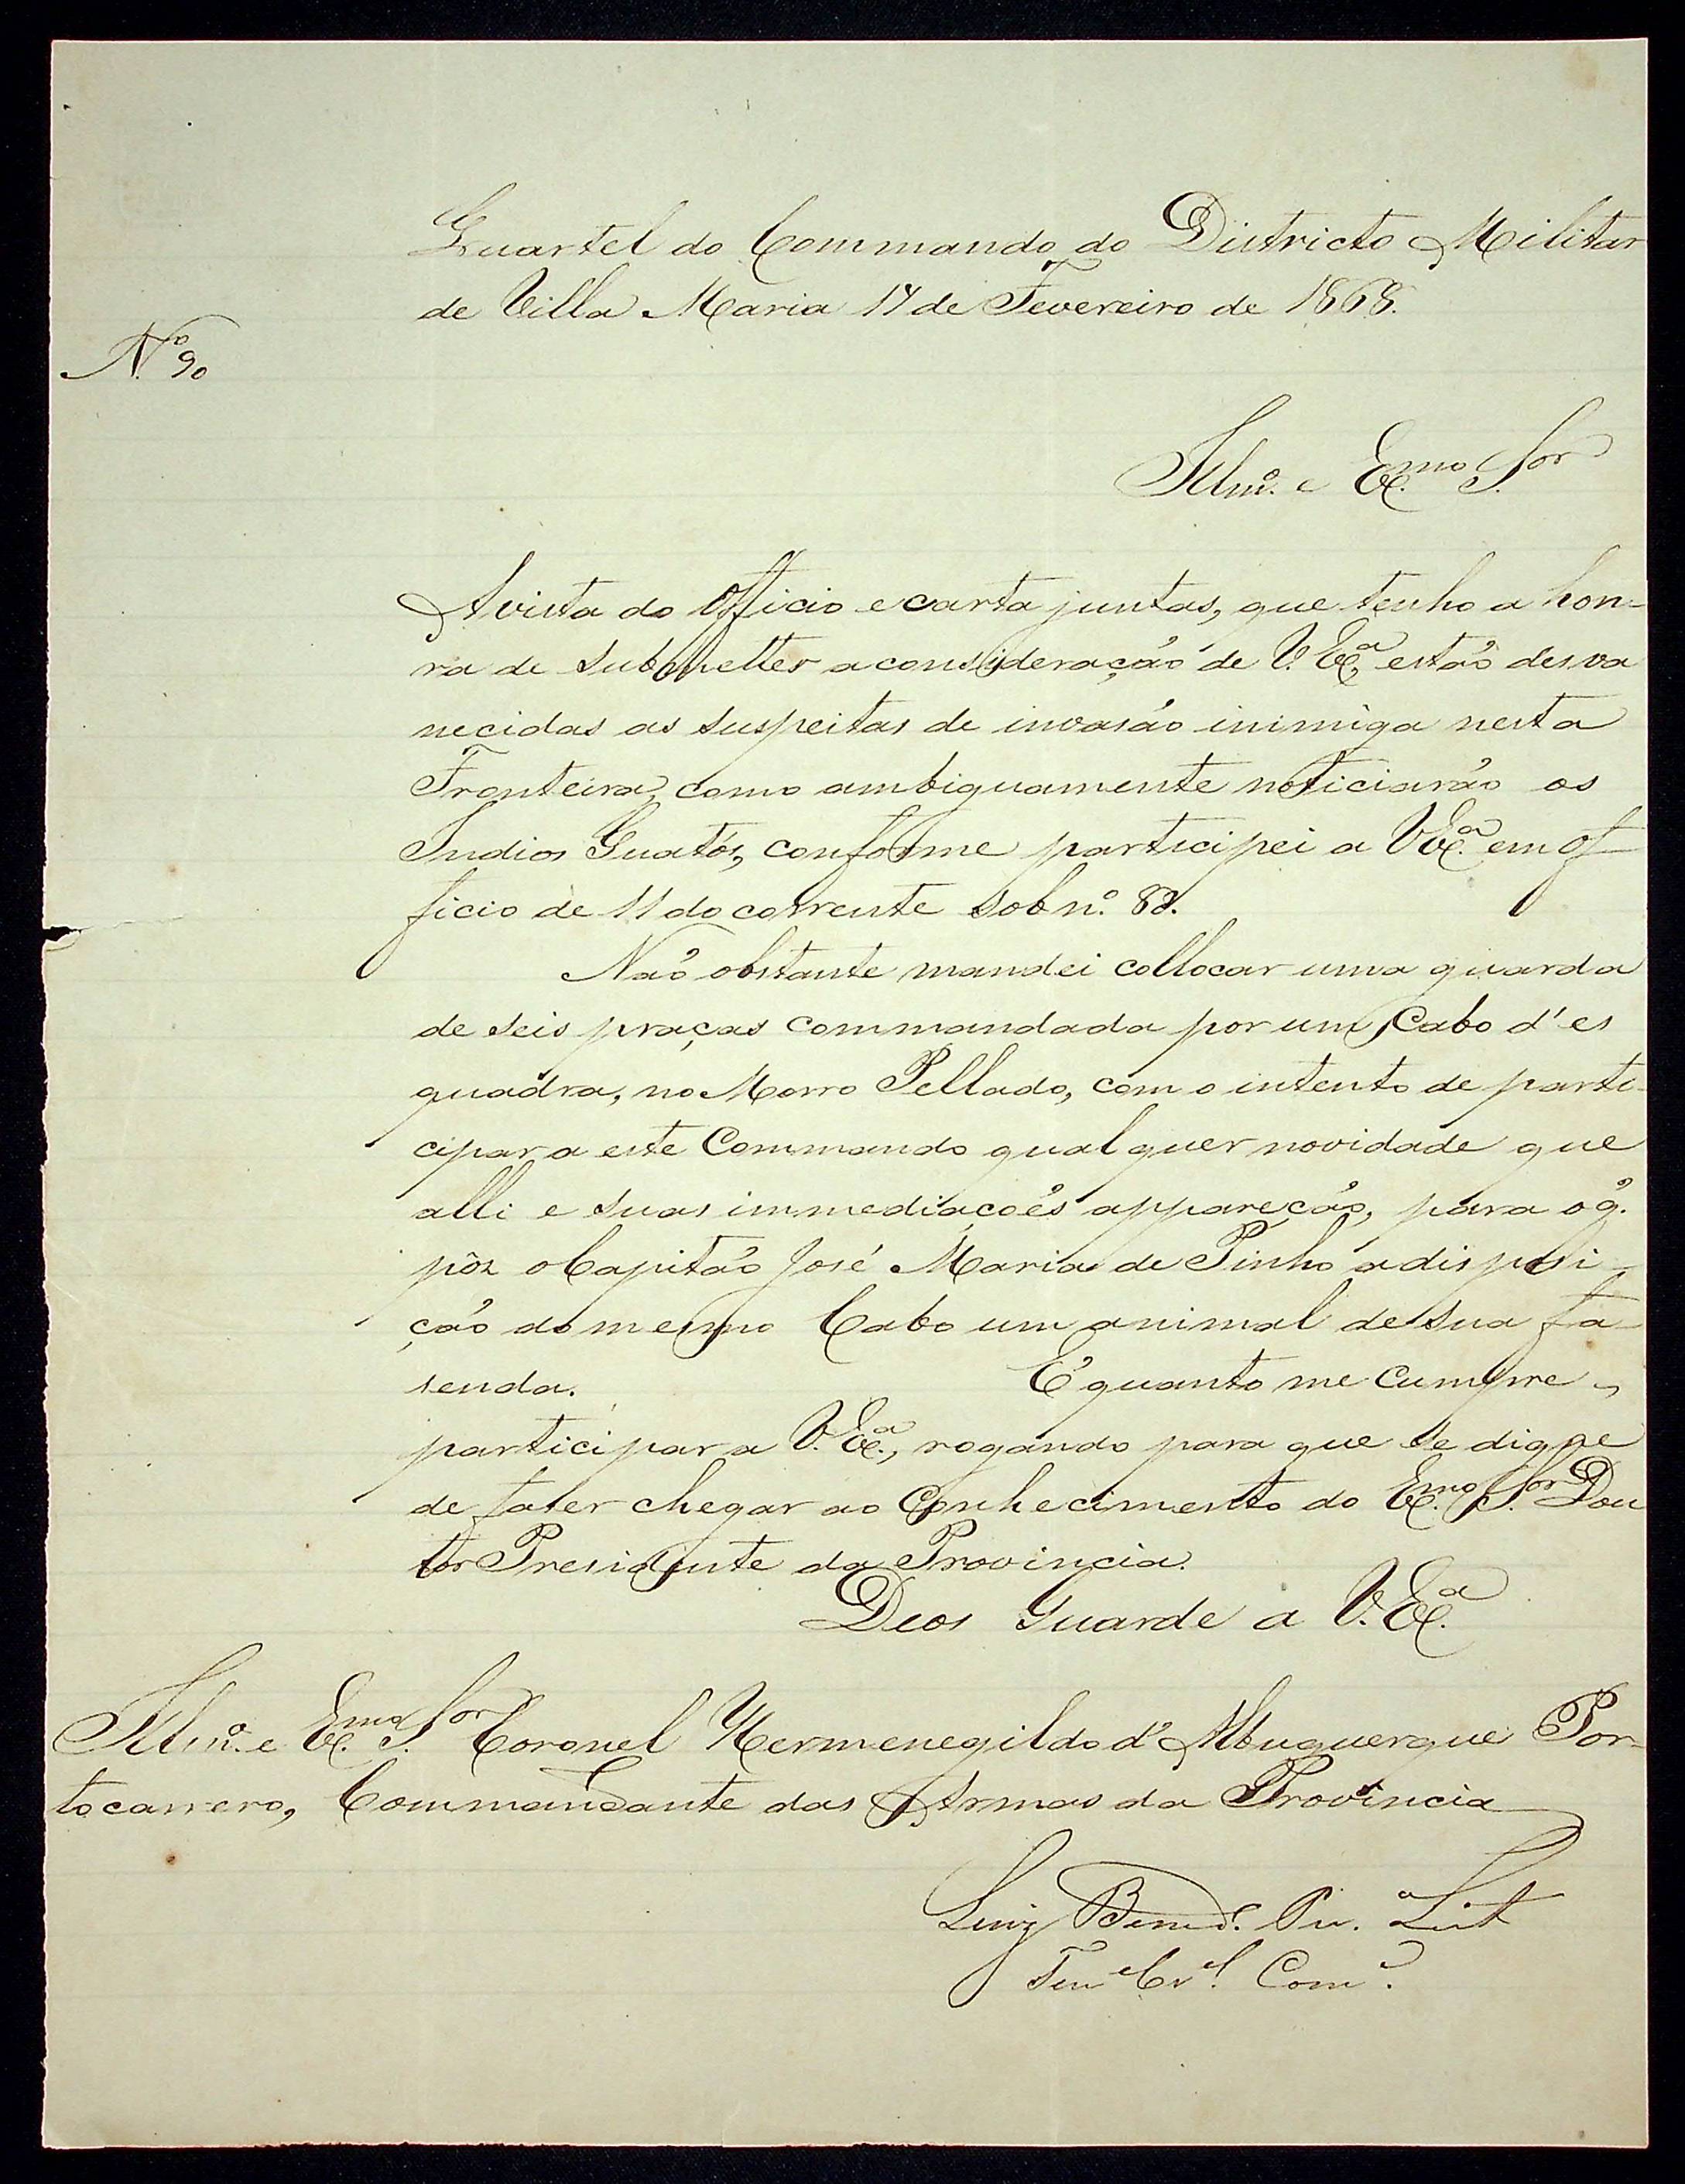 Quartel do Commando do Districto Militar
de Villa Maria 17 de Fevereiro de 1868.
N.º 90
Illmº. e Exc.mo S.or
A vista do Officio e carta juntas, que tenho a hon-
ra de submetter a consideração de V. Exc.ª, estão desva
necidas as suspeitas de invasão inimiga nesta
Fronteira, como ambiguamente noticiarão os
Indios Guatós, conforme participei a V Exc.ª em of-
ficio de 11 do corrente sob n.º 82.
Não obstante mandei collocar uma guarda
de seis praças commandada por um Cabo d'es
quadra, no Morro Pellado, com o intento de parti-
cipar a este Commando qualquer novidade que
alli e suas immediações appareção, para o q.
pôz o Capitão José Maria de Pinho a disposi-
ção do mesmo Cabo um animal de sua fa-
senda. É quanto me cumpre
participar a V. Exc.ª, rogando para que se digne
de fazer chegar ao Conhecimento do Exc.mo S.or Dou
tor Presidente da Provincia.
Deos Guarde a V. Exc.ª
Illmº. e Exc.mo S.or Coronel Hermenegildo d'Albuquerque Por-
tocarrero, Commandante das Armas da Provincia
Luiz Bened.º
Ten.e C.el Com.e